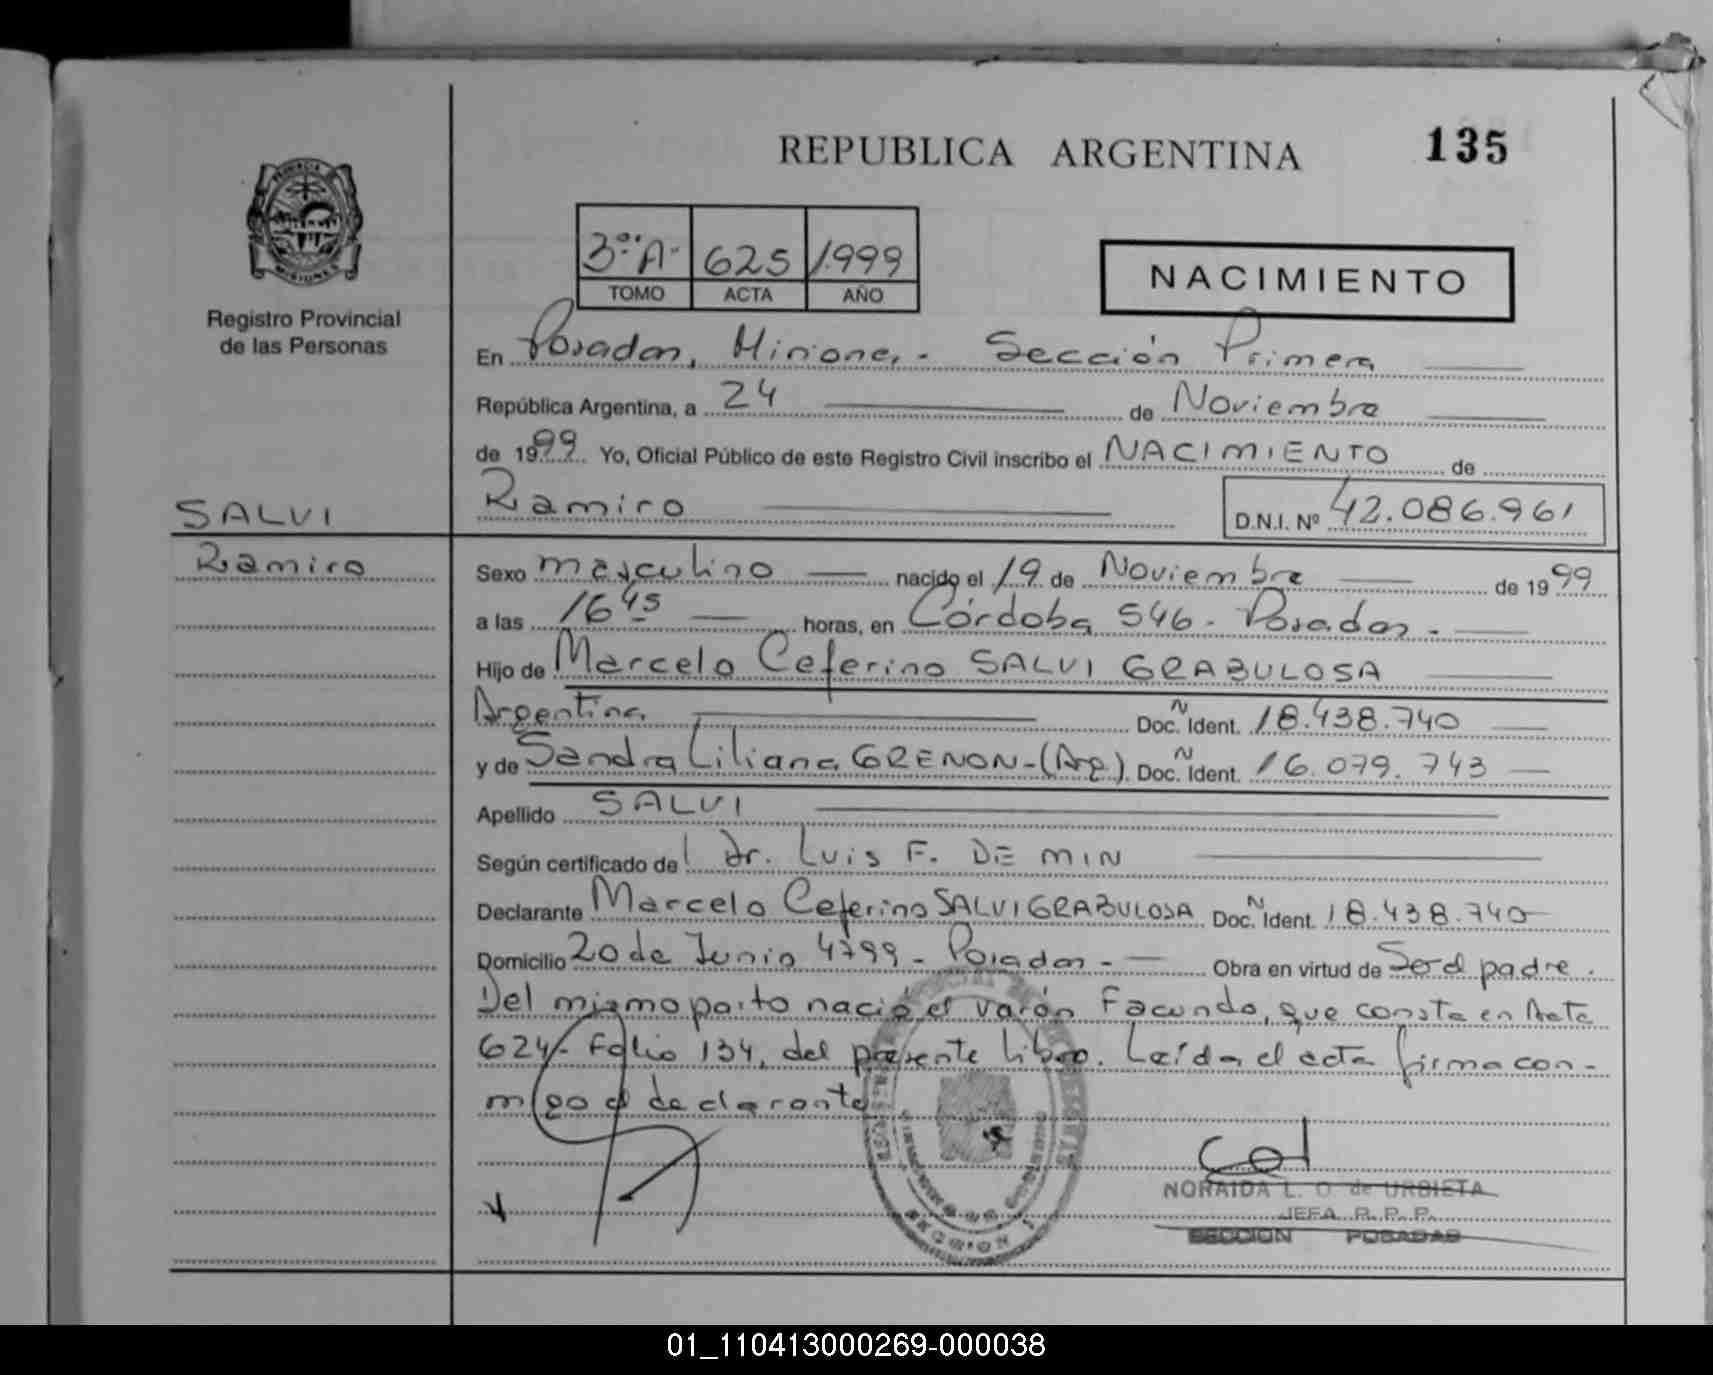 REPUBLICA ARGENTINA
135
PROVINCIA DE
MISIONES
Registro Provincial
de las Personas
3º "A"
625
1.999
TOMO
ACTA
AÑO
NACIMIENTO
En Posadas, Misiones.- Sección Primera
República Argentina, a 24 de Noviembre
de 1999. Yo, Oficial Público de este Registro Civil inscribo el NACIMIENTO de
SALVI
Ramiro
Ramiro
D.N.I. Nº 42.086.961
Sexo masculino nacido el 19 de Noviembre de 1999
a las 16 45 horas, en Córdoba 546 - Posadas -
Hijo de Marcelo Ceferino SALVI GRABULOSA
Argentina Doc. N Ident. 18.438.740
y de Sandra Liliana GRENON-(Arg.). Doc. N Ident. 16.079.743
Apellido SALVI
Según certificado del Dr. Luis F. DE MIN
Declarante Marcelo Ceferino SALVI GRABULOSA Doc. N Ident. 18.438.740
Domicilio 20 de Junio 4799 - Posadas - Obra en virtud de Ser el padre.
Del mismo parto nació el varón Facundo, que consta en Acta
624 - Folio 134, del presente libro. Leída el acta firma con-
migo el declarante
NORAIDA L. O. de URBIETA
JEFA R. P. P.
SECCION POSADAS
01_110413000269-000038